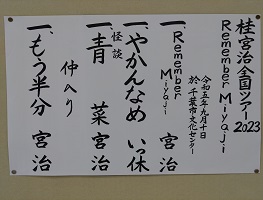 桂宮治全国ツアー2023
Remember Miyaji
令和五年九月十日
於 千葉市文化センター
一、Remember Miyaji 宮治
一、やかんなめ い休
怪談
一、青菜 宮治
仲入り
一、もう半分 宮治